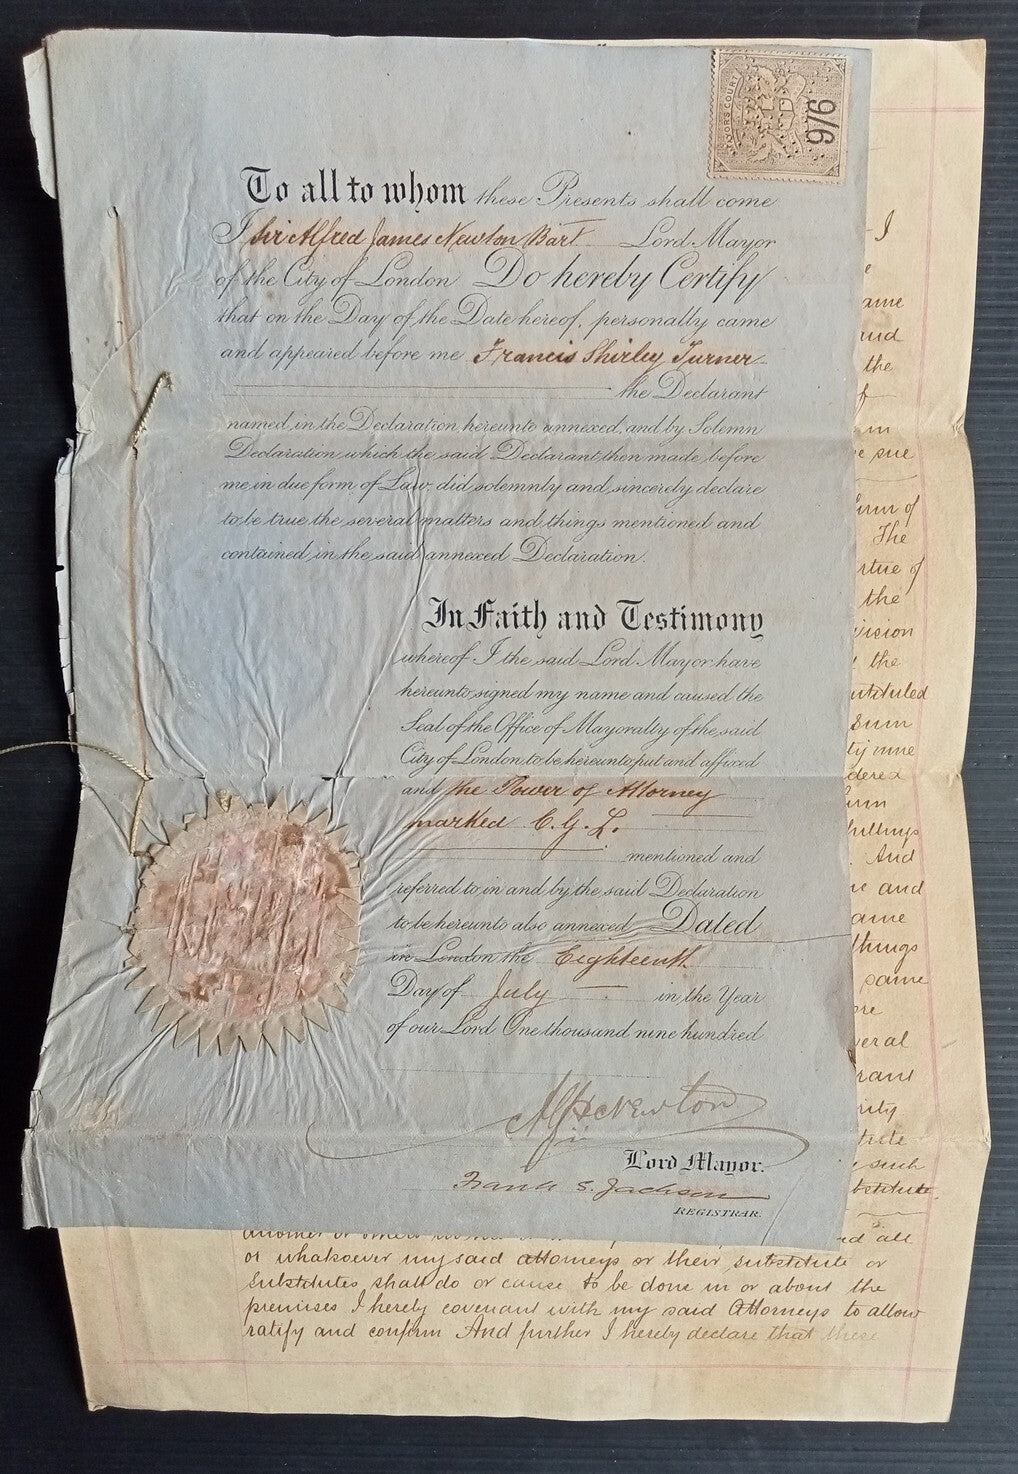 MAYORS COURT
9/6
To all to whom these Presents shall come
I Sir Alfred James Newton Bart Lord Mayor
of the City of London Do hereby Certify
that on the Day of the Date hereof, personally came
and appeared before me Francis Shirley Turner
the Declarant
named in the Declaration hereunto annexed, and by Solemn
Declaration which the said Declarant then made before
me in due form of Law, did solemnly and sincerely declare
to be true the several matters and things mentioned and
contained in the said annexed Declaration.
In Faith and Testimony
whereof I the said Lord Mayor have
hereunto signed my name and caused the
Seal of the Office of Mayoralty of the said
City of London to be hereunto put and affixed
and the Power of Attorney
marked C. G. L.
mentioned and
referred to in and by the said Declaration
to be hereunto also annexed Dated
in London the Eighteenth
Day of July in the Year
of our Lord One thousand nine hundred
Alf J Newton
Lord Mayor.
Frank S. Jackson
REGISTRAR.
I
the
in
The
the
the
sum
And
and
things
same
such
all
or whatsoever my said attorneys or their substitute or
Substitutes shall do or cause to be done in or about the
premises I hereby covenant with my said Attorneys to allow
ratify and confirm And further I hereby declare that these